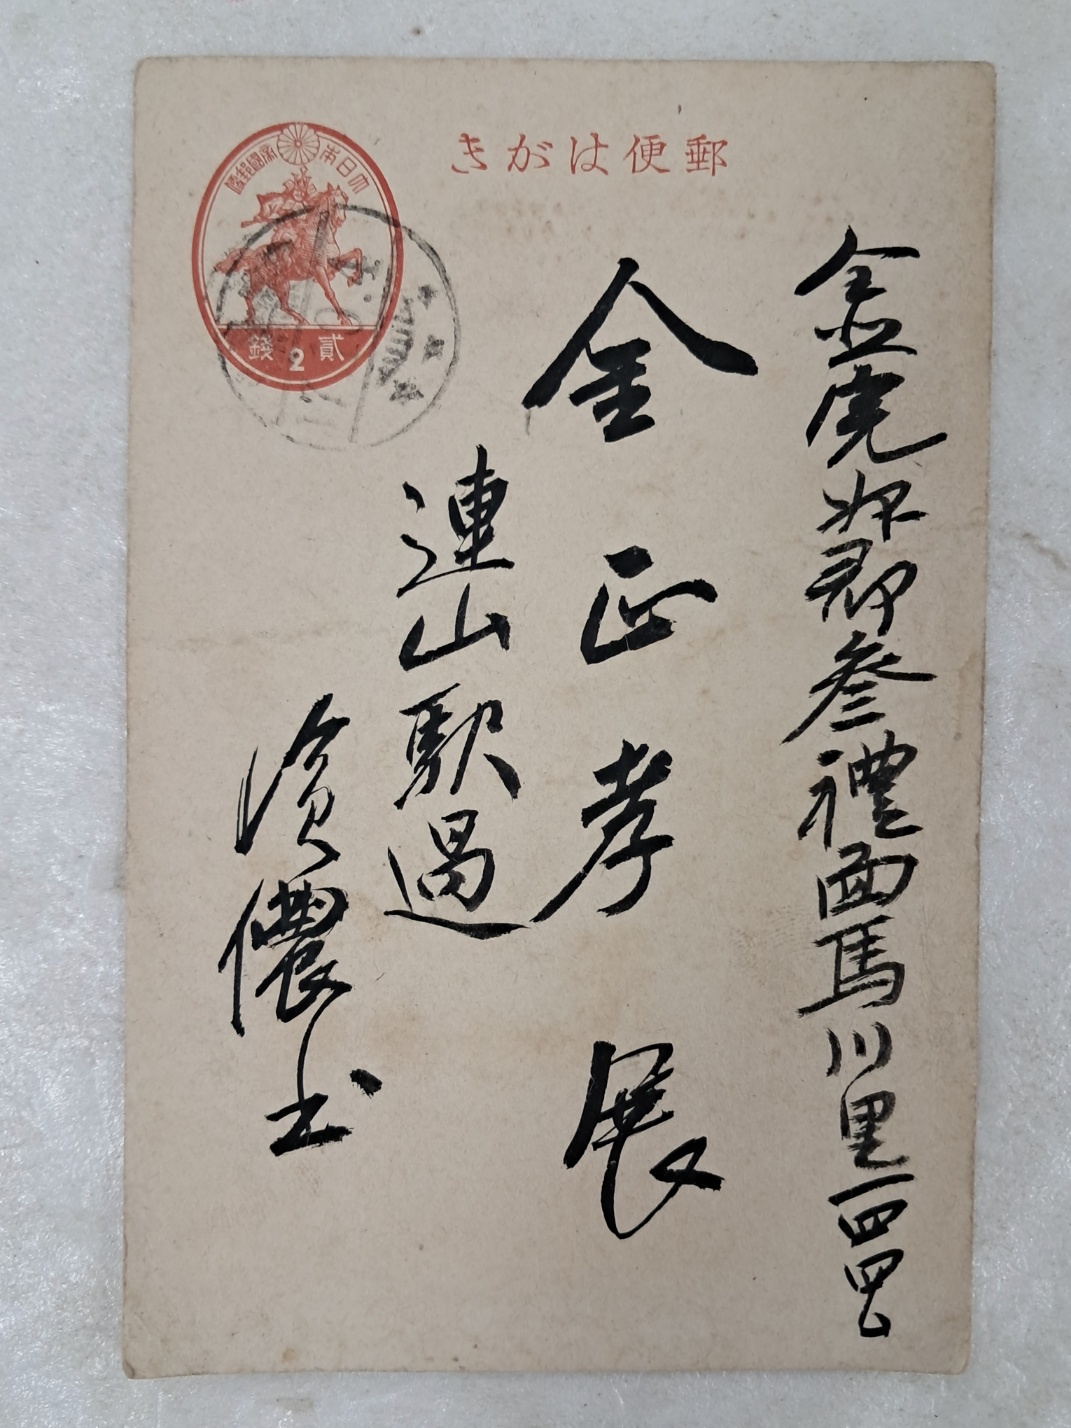 郵便はがき
大日本帝國郵便
貳錢
2
全北完州郡參禮面馬川里一四四
金正孝 展
連山駅過
濱儂生